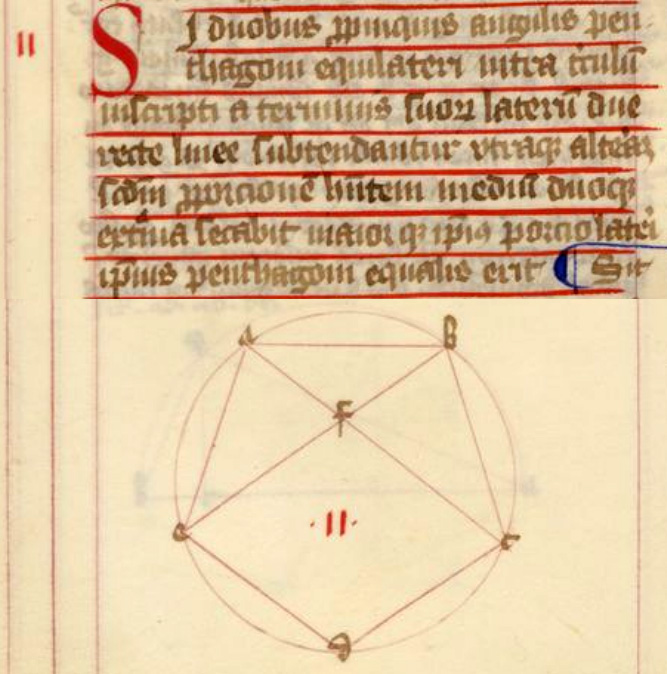 11
SI duobus ꝓpinquis angulis pen
thagoni equilateri intra cırculū
inscripti a terminis suoꝝ laterū due
recte linee subtendantur vtraqꝫ alteraꝫ
scd̄m ꝓporcionē hn̄tem mediū duoqꝫ
ext̄ma secabit maior qꝫ ip̄iꝰ porcio lateri
ip̄ius penthagoni equalis erit ¶ Sit
A B
F
·11·
C E
D